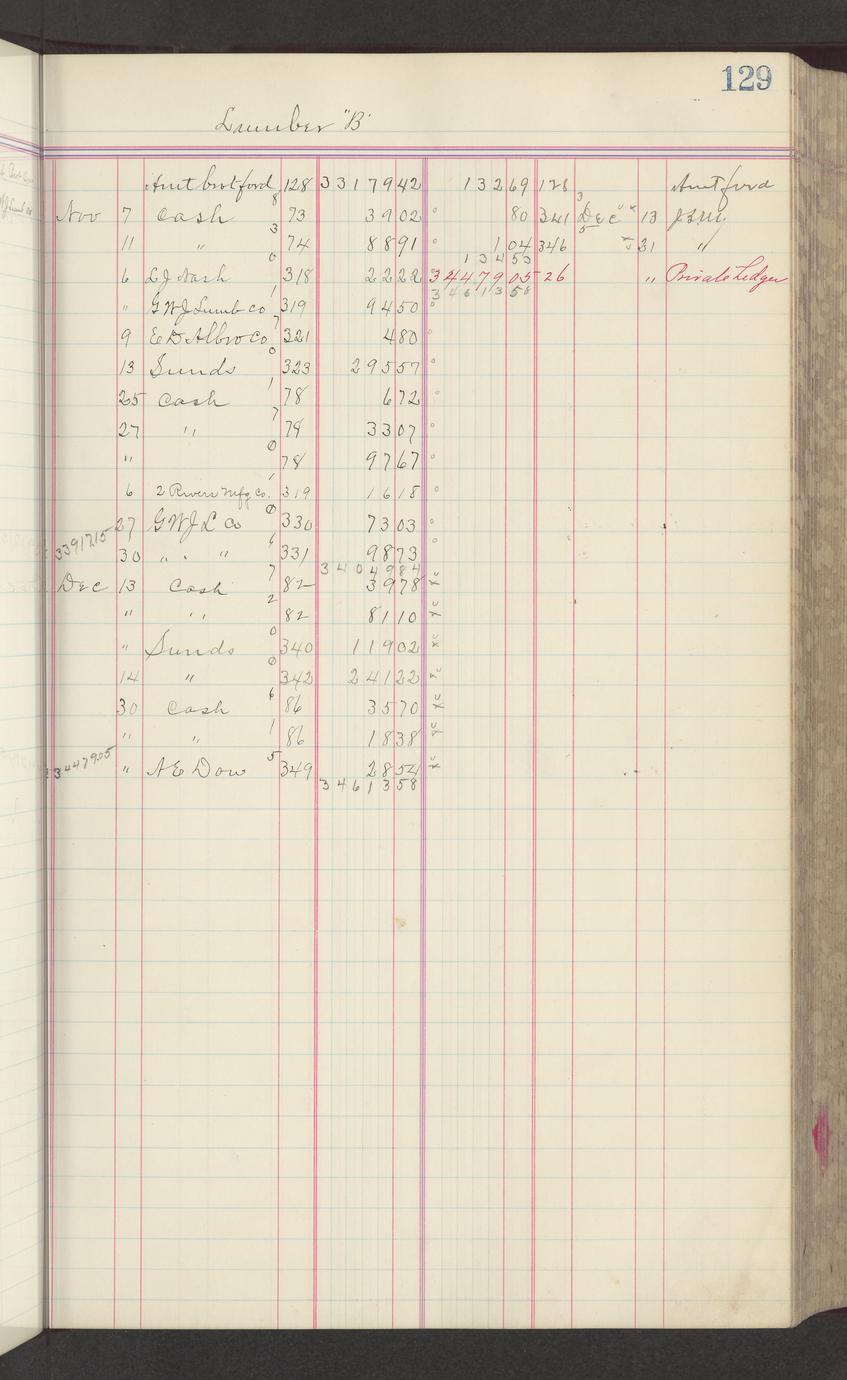 129
Lumber "B"
Amt brot ford 128 3317942 13269 128 Amt ford
8
Nov 7 Cash 73 3902 80 341 Dec 13
3
11 " 74 8891 1 04 346 31 "
0 13453
6 L J Nash 318 2222 3447905 26 " Private Ledger
1 3461358
" G W J Lumb Co 319 9450
7
9 E D Albro Co 321 480
0
13 Sunds 323 29557
1
25 Cash 78 672
7
27 " 79 3307
0
" 78 9767
1
6 2 Rivers Mfg Co. 319 1618
0
27 G W J L Co 330 7303
3391715 6
30 " " " 331 9873
7 3404984
Dec 13 Cash 82 3978
2
" " 82 8110
0
" Sunds 340 11902
0
14 " 342 24122
6
30 Cash 86 3570
1
" " 86 1838
3447905 5
" A E Dow 349 2854
3461358